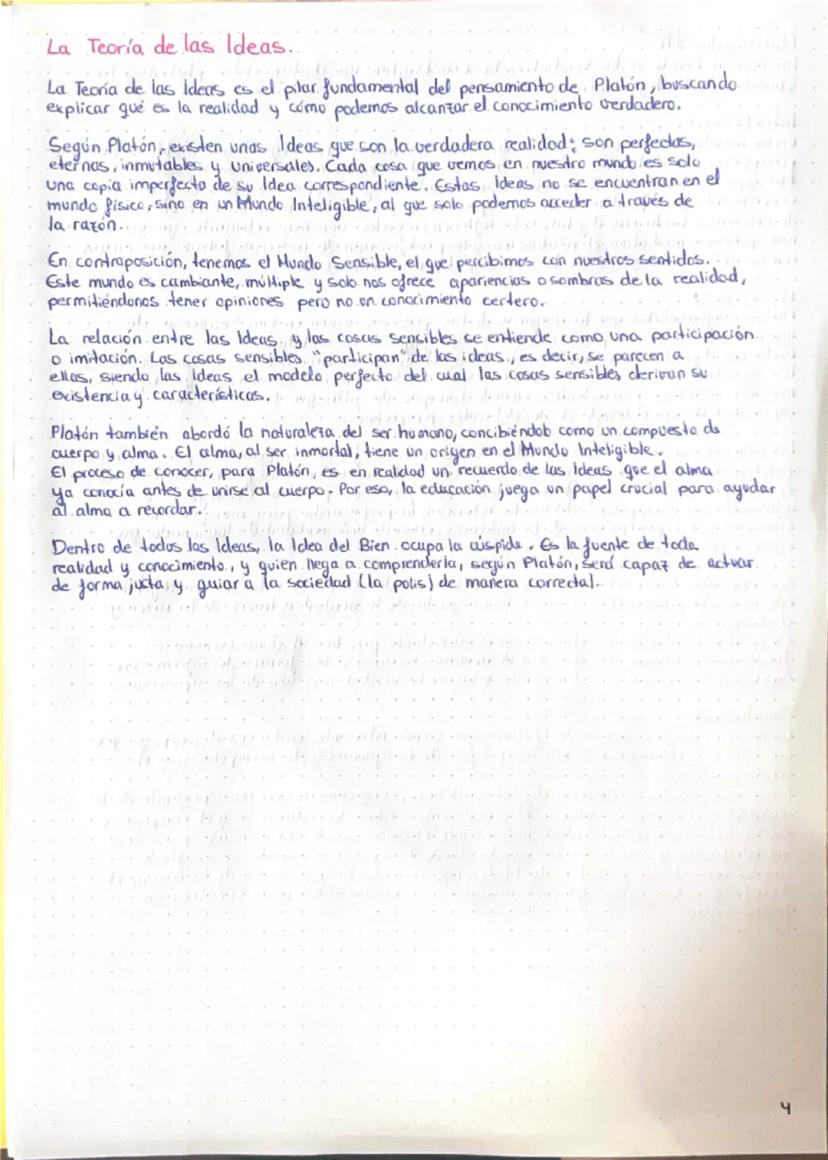 La Teoría de las Ideas.
La Teoría de las Ideas es el pilar fundamental del pensamiento de Platón, buscando
explicar qué es la realidad y cómo podemos alcanzar el conocimiento verdadero.
Según Platón, existen unas Ideas que son la verdadera realidad: son perfectas,
eternas, inmutables y universales. Cada cosa que vemos en nuestro mundo es solo
una copia imperfecta de su Idea correspondiente. Estas Ideas no se encuentran en el
mundo físico, sino en un Mundo Inteligible, al que solo podemos acceder a través de
la razón.
En contraposición, tenemos el Mundo Sensible, el que percibimos con nuestros sentidos.
Este mundo es cambiante, múltiple y solo nos ofrece apariencias o sombras de la realidad,
permitiéndonos tener opiniones pero no un conocimiento certero.
La relación entre las Ideas y las cosas sensibles se entiende como una participación
o imitación. Las cosas sensibles "participan" de las ideas, es decir, se parecen a
ellas, siendo las Ideas el modelo perfecto del cual las cosas sensibles derivan su
existencia y características.
Platón también abordó la naturaleza del ser humano, concibiéndolo como un compuesto de
cuerpo y alma. El alma, al ser inmortal, tiene un origen en el Mundo Inteligible.
El proceso de conocer, para Platón, es en realidad un recuerdo de las Ideas que el alma
ya conocía antes de unirse al cuerpo. Por eso, la educación juega un papel crucial para ayudar
al alma a recordar.
Dentro de todas las Ideas, la Idea del Bien ocupa la cúspide. Es la fuente de toda
realidad y conocimiento, y quien llega a comprenderla, según Platón, será capaz de actuar
de forma justa y guiar a la sociedad (la polis) de manera correcta.
4